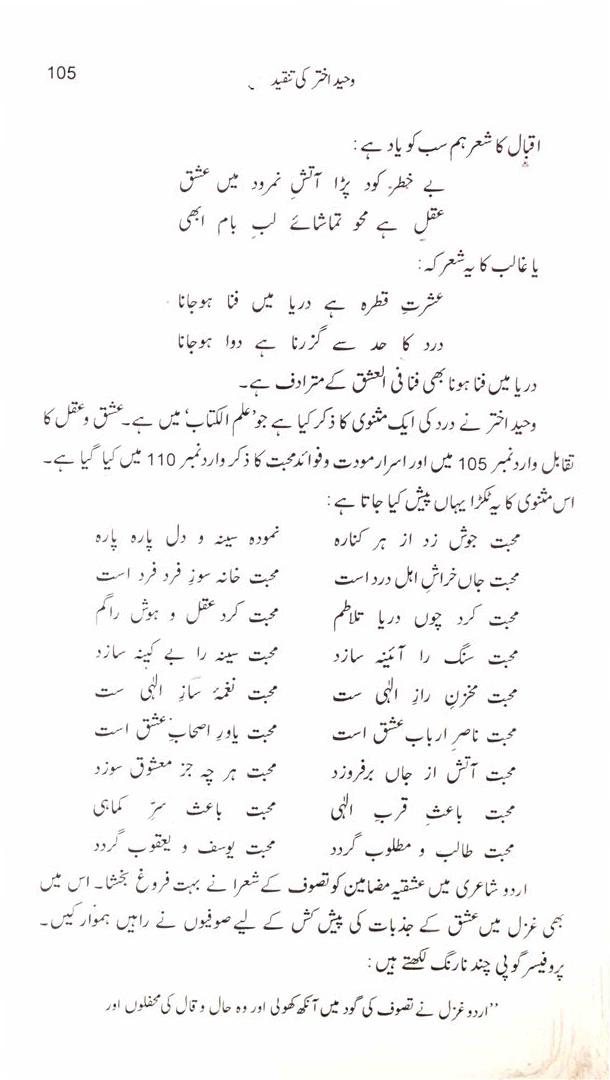 105 وحید اختر کی تنقید
اقبال کا شعر ہم سب کو یاد ہے:
بے خطر کود پڑا آتشِ نمرود میں عشق
عقل ہے محوِ تماشائے لبِ بام ابھی
یا غالب کا یہ شعر کہ:
عشرتِ قطرہ ہے دریا میں فنا ہوجانا
درد کا حد سے گزرنا ہے دوا ہوجانا
دریا میں فنا ہونا بھی فنا فی العشق کے مترادف ہے۔
وحید اختر نے درد کی ایک مثنوی کا ذکر کیا ہے جو ’علم الکتاب‘ میں ہے۔ عشق و عقل کا
تقابل وارد نمبر 105 میں اور اسرار مودت و فوائد محبت کا ذکر وارد نمبر 110 میں کیا گیا ہے۔
اس مثنوی کا یہ ٹکڑا یہاں پیش کیا جاتا ہے:
محبت جوش زد از ہر کنارہ نمودہ سینہ و دل پارہ پارہ
محبت جاں خراشِ اہل درد است محبت خانہ سوزِ فرد فرد است
محبت کرد چوں دریا تلاطم محبت کرد عقل و ہوش را گم
محبت سنگ را آئینہ سازد محبت سینہ را بے کینہ سازد
محبت مخزنِ رازِ الٰہی ست محبت نغمۂ سازِ الٰہی ست
محبت ناصرِ اربابِ عشق است محبت یاورِ اصحابِ عشق است
محبت آتش از جاں برفروزد محبت ہر چہ جز معشوق سوزد
محبت باعثِ قربِ الٰہی محبت باعث سرّ کماہی
محبت طالب و مطلوب گردد محبت یوسف و یعقوب گردد
اردو شاعری میں عشقیہ مضامین کو تصوف کے شعرا نے بہت فروغ بخشا۔ اس میں
بھی غزل میں عشق کے جذبات کی پیش کش کے لیے صوفیوں نے راہیں ہموار کیں۔
پروفیسر گوپی چند نارنگ لکھتے ہیں:
’’اردو غزل نے تصوف کی گود میں آنکھ کھولی اور وہ حال و قال کی محفلوں اور